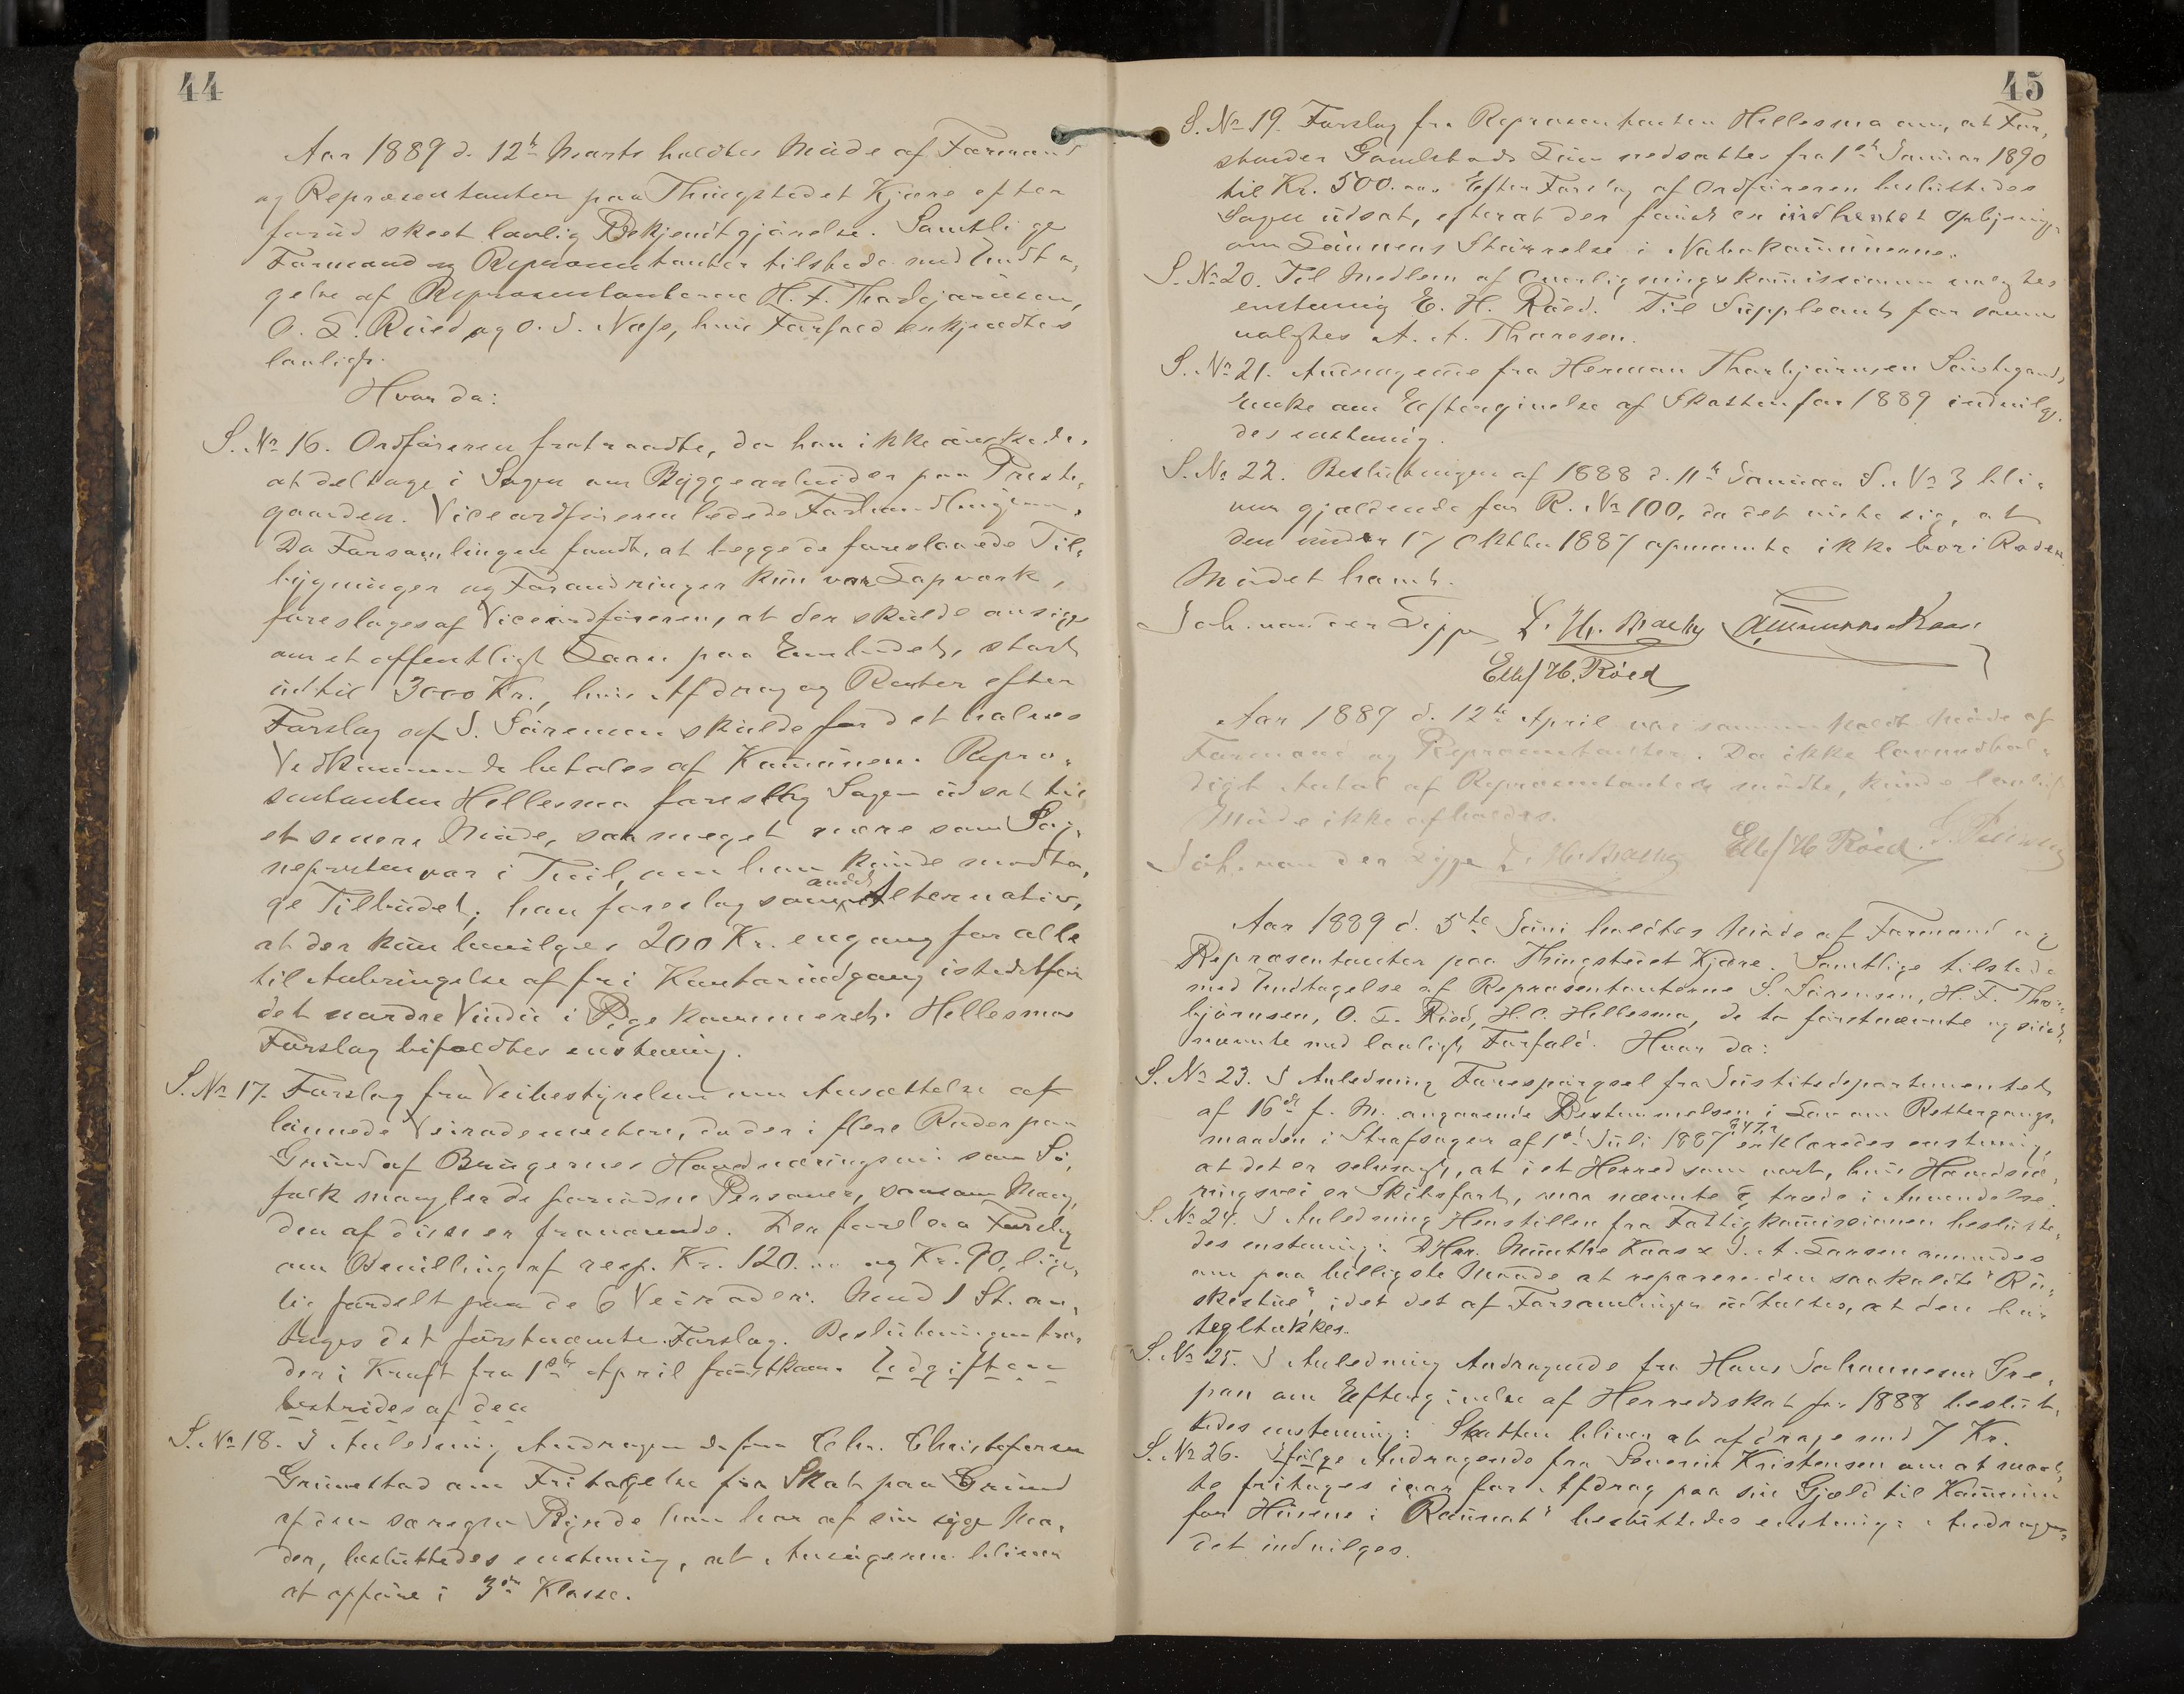 44
Aar 1889 d. 12te Marts holdtes Møde af Formænd
og Repræsentanter paa Thingstedet Kjære efter
forud skeet lovlig Bekjendtgjørelse. Samtlige
Formænd og Repræsentanter tilstede med Undta-
gelse af Repræsentanterne H. F. Thorbjørnsen,
O. L. Røed og O. J. Næss, hvis Forfald erkjendtes
lovligt.
Hvor da:
S. No 16. Ordføreren fratraadte, da han ikke ønskede
at deltage i Sagen om Byggearbeider paa Preste-
gaarden. Viceordføreren ledede Forhandlingerne.
Da Forsamlingen fandt, at begge de foreslaaede Til-
bygninger og Forandringer kun var Lapværk,
foresloges af Viceordføreren, at der skulde ansøges
om et offentligt Laan paa Embedet, stort
indtil 3000 Kr., hvis Afdrag og Renter efter
Forslag af S. Sørensen skulde for det halves
Vedkommende betales af Kommunen. Repræ-
sentanten Hellesmo foreslog Sagen udsat til
et senere Møde, saa meget mere som Sog-
nepresten var i Tvil, om han kunde modta-
ge Tilbudet; han foreslog som andet Alternativ,
at der kun bevilges 200 Kr. engang for alle
til Anbringelse af fri Kontorindgang istedetfor
det nordre Vindu i Pigekammeret. Hellesmos
Forslag bifaldtes enstemmig.
S. No 17. Forslag fra Veibestyrelsen om Ansættelse af
lønnede Veirodemestere, da der i flere Roder paa
Grund af Brugernes Haandnæringsvei som Sø-
folk mangler de fornødne Personer, saasom Mæng-
den af disse er fraværende. Der forelaa Forslag
om Bevilling af resp. Kr. 120.00 og Kr. 90, lige-
lig fordelt paa de 6 Veiroder. Mod 1 St. an-
toges det førstnævnte Forslag. Beslutningen træ-
der i Kraft fra 1ste April førstkom. Udgiftene
bestrides af den
S. No 18. I Anledning Andragende fra Chr. Christofersen
Grimestad om Fritagelse for Skat paa Grund
af den særegne Byrde han har af sin syge Mo-
der, besluttedes enstemmig, at Ansøgeren bliver
at opføre i 3die Klasse.
45
S. No 19. Forslag fra Repræsentanten Hellesmo om, at For-
stander Gamlestads Løn nedsættes fra 1ste Januar 1890
til Kr. 500.00. Efter Forslag af Ordføreren besluttedes
Sagen udsat, efterat der først er indhentet Oplysninger
om Lønnens Størrelse i Nabokommunerne.
S. No 20. Til Medlem af Overligningskommissionen valgtes
enstemmig E. H. Røed. Til Suppleant for samme
valgtes A. A. Thoresen.
S. No 21. Andragende fra Herman Thorbjørnsen
Enke om Eftergivelse af Skatten for 1889 indvilge-
des enstemmig.
S. No 22. Beslutningen af 1888 d. 11te Januar S. No 3 bli-
ver gjældende for R. No 100, da det viste sig, at
den under 17 Oktbr 1887 opnævnte ikke bor i Roden.
Mødet hævet.
Joh. van der Lippe
Ell/H. Röed
Aar 1889 d. 12te April var sammenkaldt Møde af
Formænd og Repræsentanter. Da ikke lovmedhol-
digt Antal af Repræsentanter mødte, kunde lovligt
Møde ikke afholdes.
Joh. van der Lippe Ell/H Röed.
Aar 1889 d. 5te Juni holdtes Møde af Formænd og
Repræsentanter paa Thingstedet Kjære. Samtlige tilstede
med Undtagelse af Repræsentanterne S. Sørensen, H. F. Thor-
bjørnsen, O. L. Röed, H. C. Hellesmo, de to førstnævnte og sidst-
nævnte med lovligt Forfald. Hvor da:
S. No 23. I Anledning Forespørgsel fra Justitsdepartementet
af 16de f. M. angaaende Bestemmelsen i Lov om Rettergangs-
maaden i Strafsager af 1ste Juli 1887 erklæredes enstemmig,
at det er selvsagt, at i et Herred som vort, hvis Haandnæ-
ringsvei er Skibsfart, maa nævnte § træde i Anvendelse.
S. No 24. I Anledning Henstillen fra Fattigkommissionen beslutte-
des enstemmig: DHrr. Munthe Kaas & J. A. Larsen anmodes
om paa billigste Maade at reparere den saakaldte "Ru-
skestue", idet det af Forsamlingen udtaltes, at den bør
tegltækkes.
S. No 25. I Anledning Andragende fra Hans Johannesen Gre-
pan om Eftergivelse af Herredsskat for 1888 beslut-
tedes enstemmig: Skatten bliver at afdrage med 7 Kr.
S. No 26. Ifølge Andragende fra Severin Kristensen om at maat-
te fritages iaar for Afdrag paa sin Gjæld til Kommunen
for Husene i "Rønnat" besluttedes enstemmig: Andragen-
det indvilges.